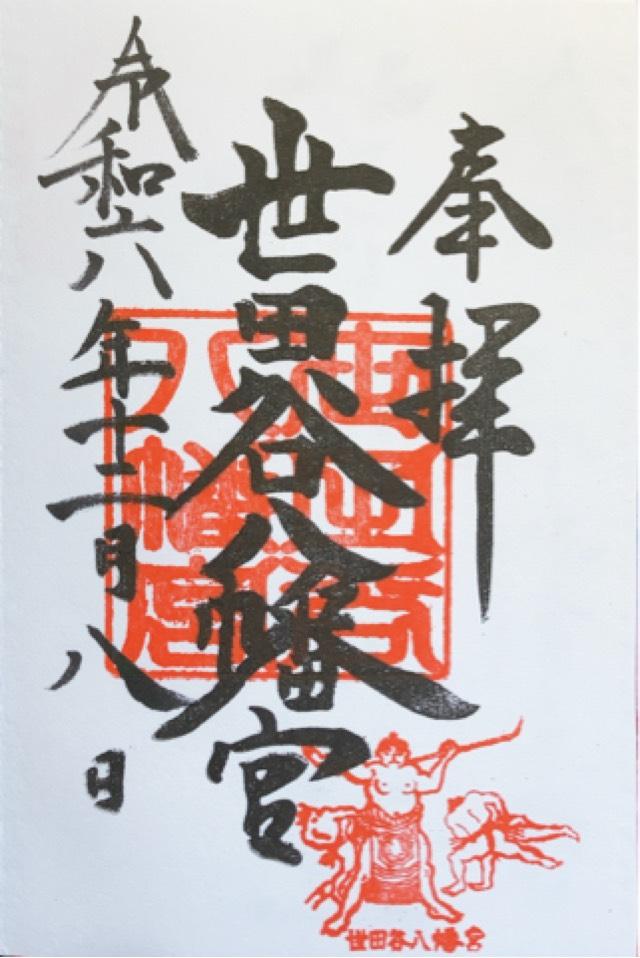 奉拝
世田谷八幡宮
令和六年十二月八日
世田谷
八幡宮
世田谷八幡宮